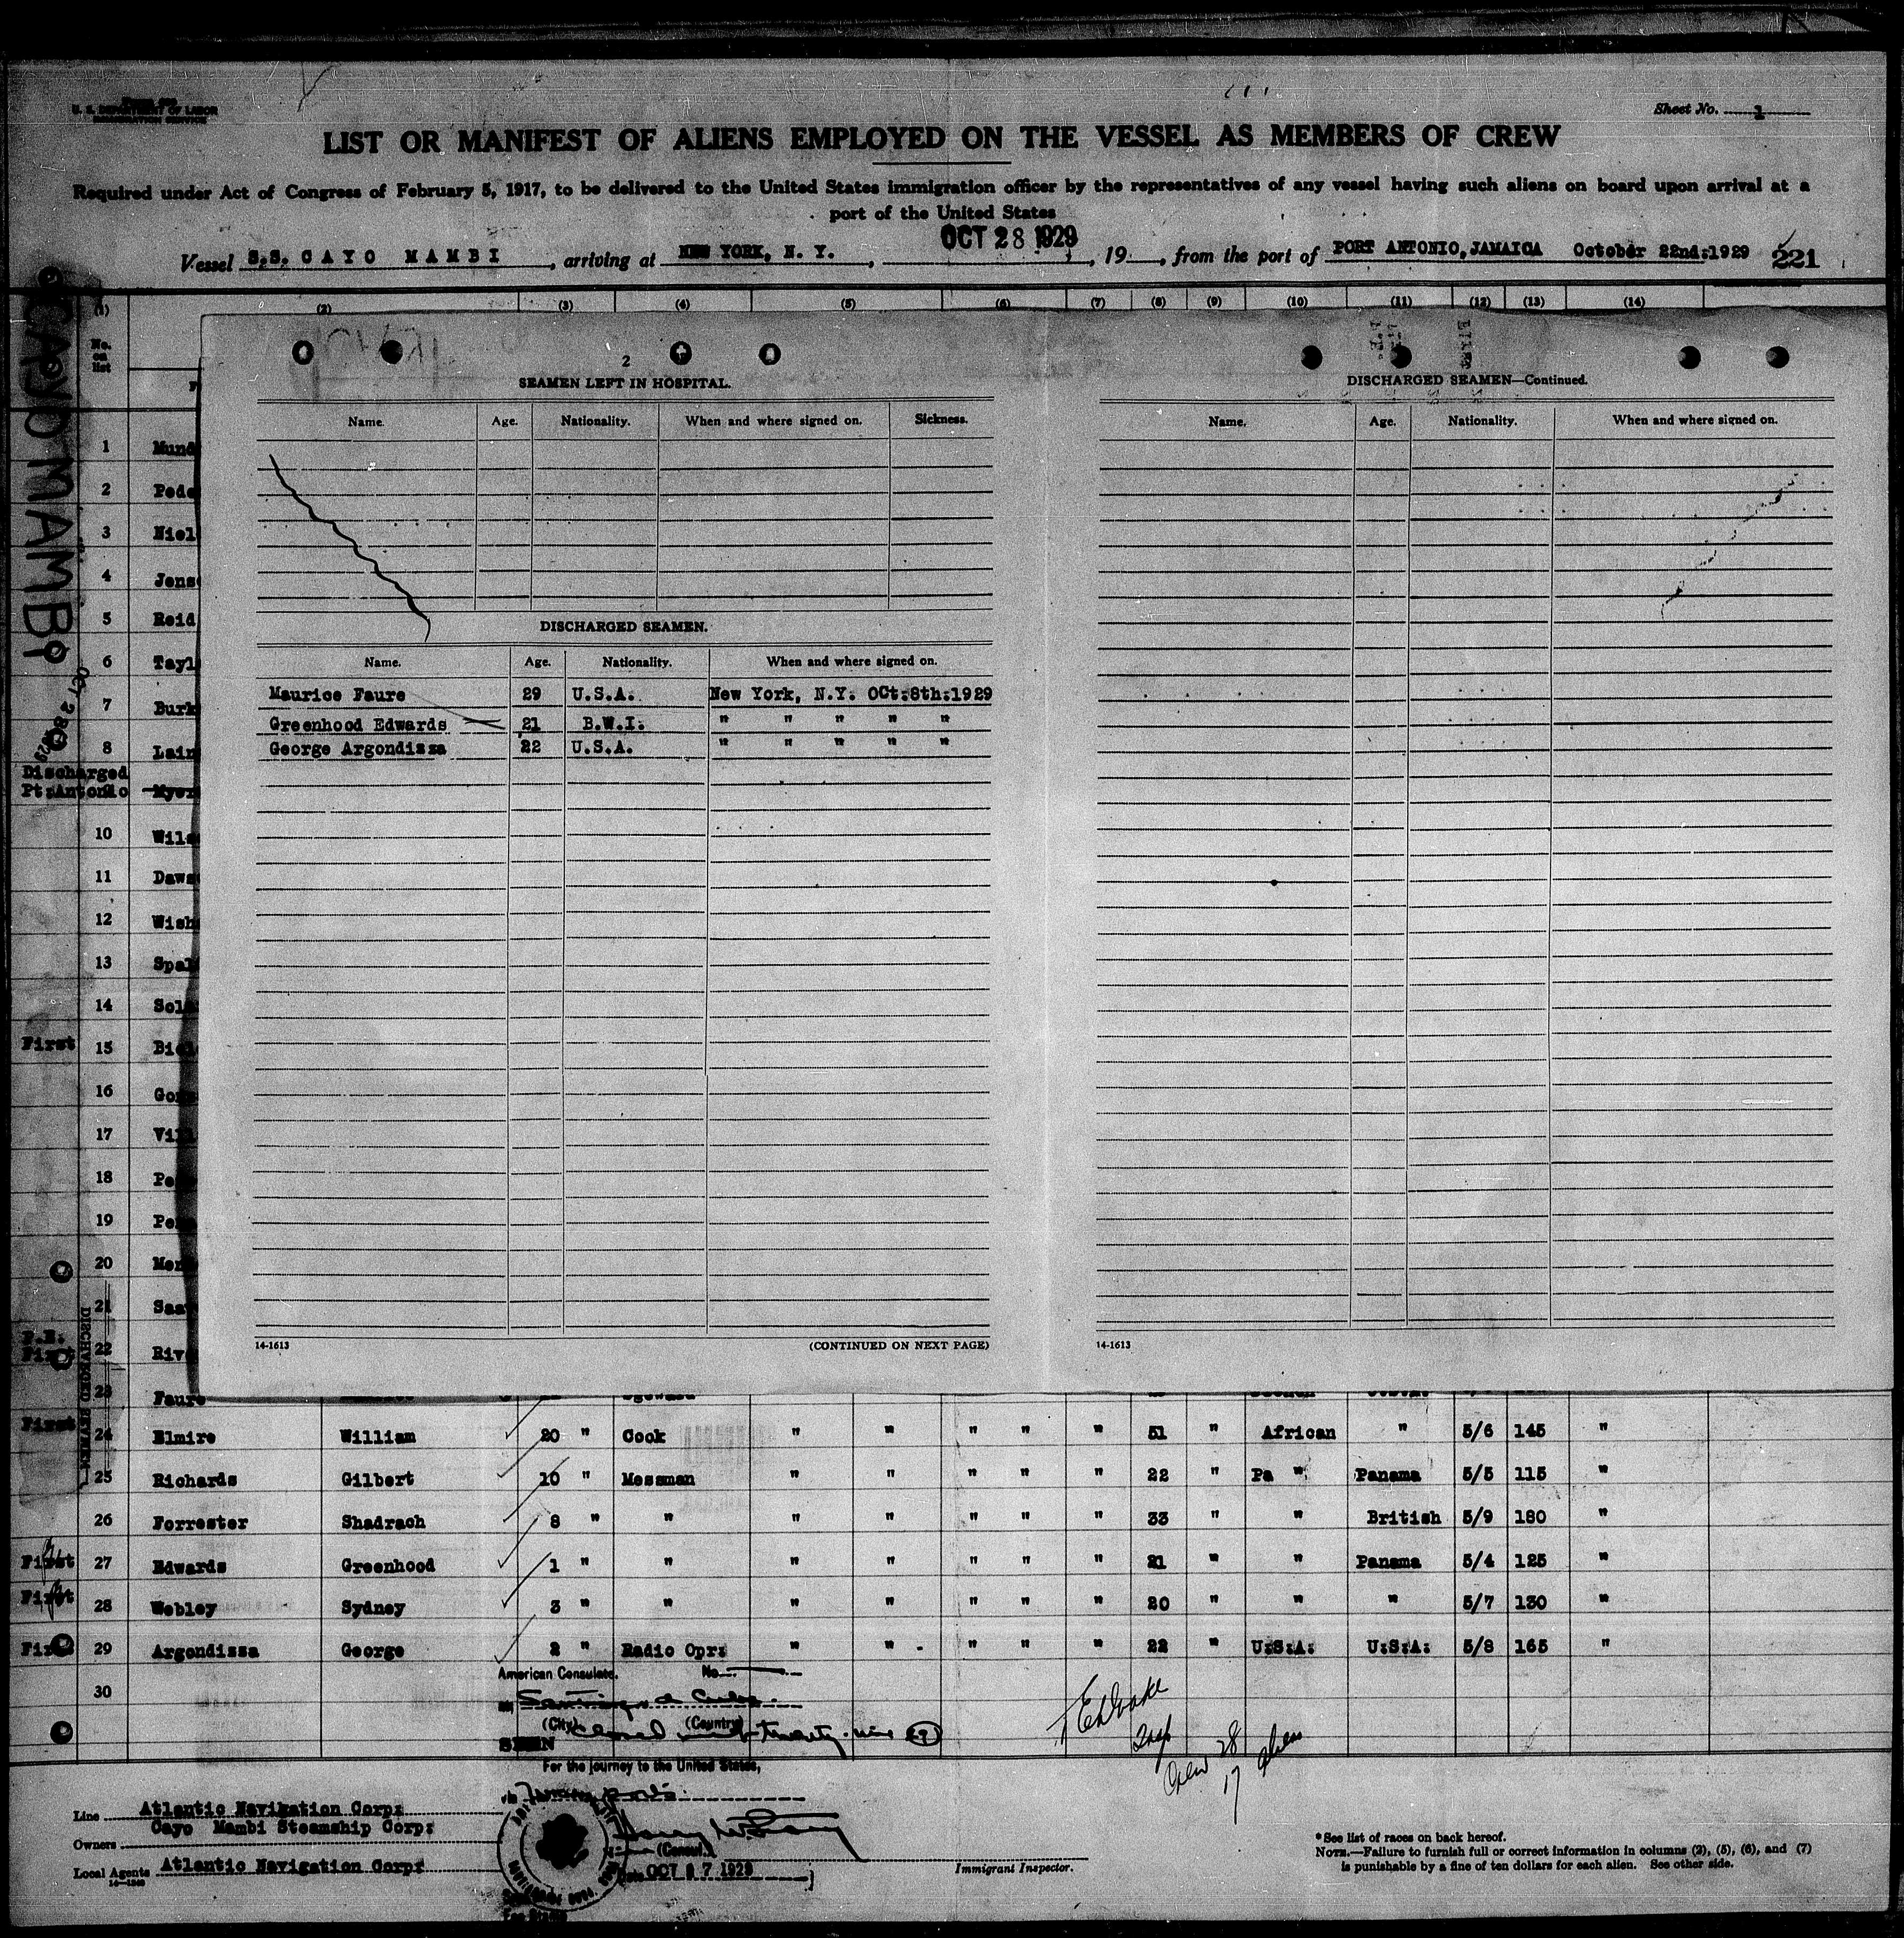 U. S. DEPARTMENT OF LABOR
IMMIGRATION SERVICE
Sheet No. 1
LIST OR MANIFEST OF ALIENS EMPLOYED ON THE VESSEL AS MEMBERS OF CREW
Required under Act of Congress of February 5, 1917, to be delivered to the United States immigration officer by the representatives of any vessel having such aliens on board upon arrival at a
port of the United States
Vessel S.S. CAYO MAMBI, arriving at NEW YORK, N. Y., OCT 28 1929, 19 , from the port of PORT ANTONIO, JAMAICA October 22nd:1929 221
(1) (2) (3) (4) (5) (6) (7) (8) (9) (10) (11) (12) (13) (14)
No. on list
CAYO MAMBI
OCT 28 1929
2
SEAMEN LEFT IN HOSPITAL.
Name. Age. Nationality. When and where signed on. Sickness.
DISCHARGED SEAMEN.
Name. Age. Nationality. When and where signed on.
Maurice Faure 29 U.S.A. New York, N.Y. OCt:8th:1929
Greenhood Edwards 21 B.W.I. " " " " "
George Argondizza 22 U.S.A. " " " " "
14-1613 (CONTINUED ON NEXT PAGE)
DISCHARGED SEAMEN—Continued.
Name. Age. Nationality. When and where signed on.
14-1613
1 Mund
2 Pede
3 Niel
4 Jens
5 Reid
6 Tayl
7 Burk
8 Lain
Discharged
Pt:Antonio Myer
10 Wils
11 Daws
12 Wish
13 Spal
14 Sol
First 15 Bi
16 Go
17 Vil
18 Pe
19 Pe
20 Mer
21 Saa
P.E.
First 22 Riv
DISCHARGED SEAMEN
23 Faure
First 24 Elmire William 20 " Cook " " " " " 51 " African " 5/6 145 "
25 Richards Gilbert 10 " Messman " " " " " 22 " Pa " Panama 5/5 115 "
26 Forrester Shadrach 8 " " " " " " " 33 " " British 5/9 180 "
First 27 Edwards Greenhood 1 " " " " " " " 21 " " Panama 5/4 125 "
First 28 Webley Sydney 3 " " " " " " " 20 " " " 5/7 130 "
First 29 Argondizza George 2 " Radio Opr: " " " " " 22 " U:S:A: U:S:A: 5/8 165 "
30
American Consulate. No.
at Santiago de Cuba.
(City) (Country)
SEEN closed with twenty-nine (29)
For the journey to the United States,
via
(Consul.)
Date OCT 17 1929
Insp
Crew 28
17 aliens
Line Atlantic Navigation Corp:
Cayo Mambi Steamship Corp:
Owners
Local Agents Atlantic Navigation Corp:
Immigrant Inspector.
*See list of races on back hereof.
NOTE.—Failure to furnish full or correct information in columns (2), (5), (6), and (7)
is punishable by a fine of ten dollars for each alien. See other side.